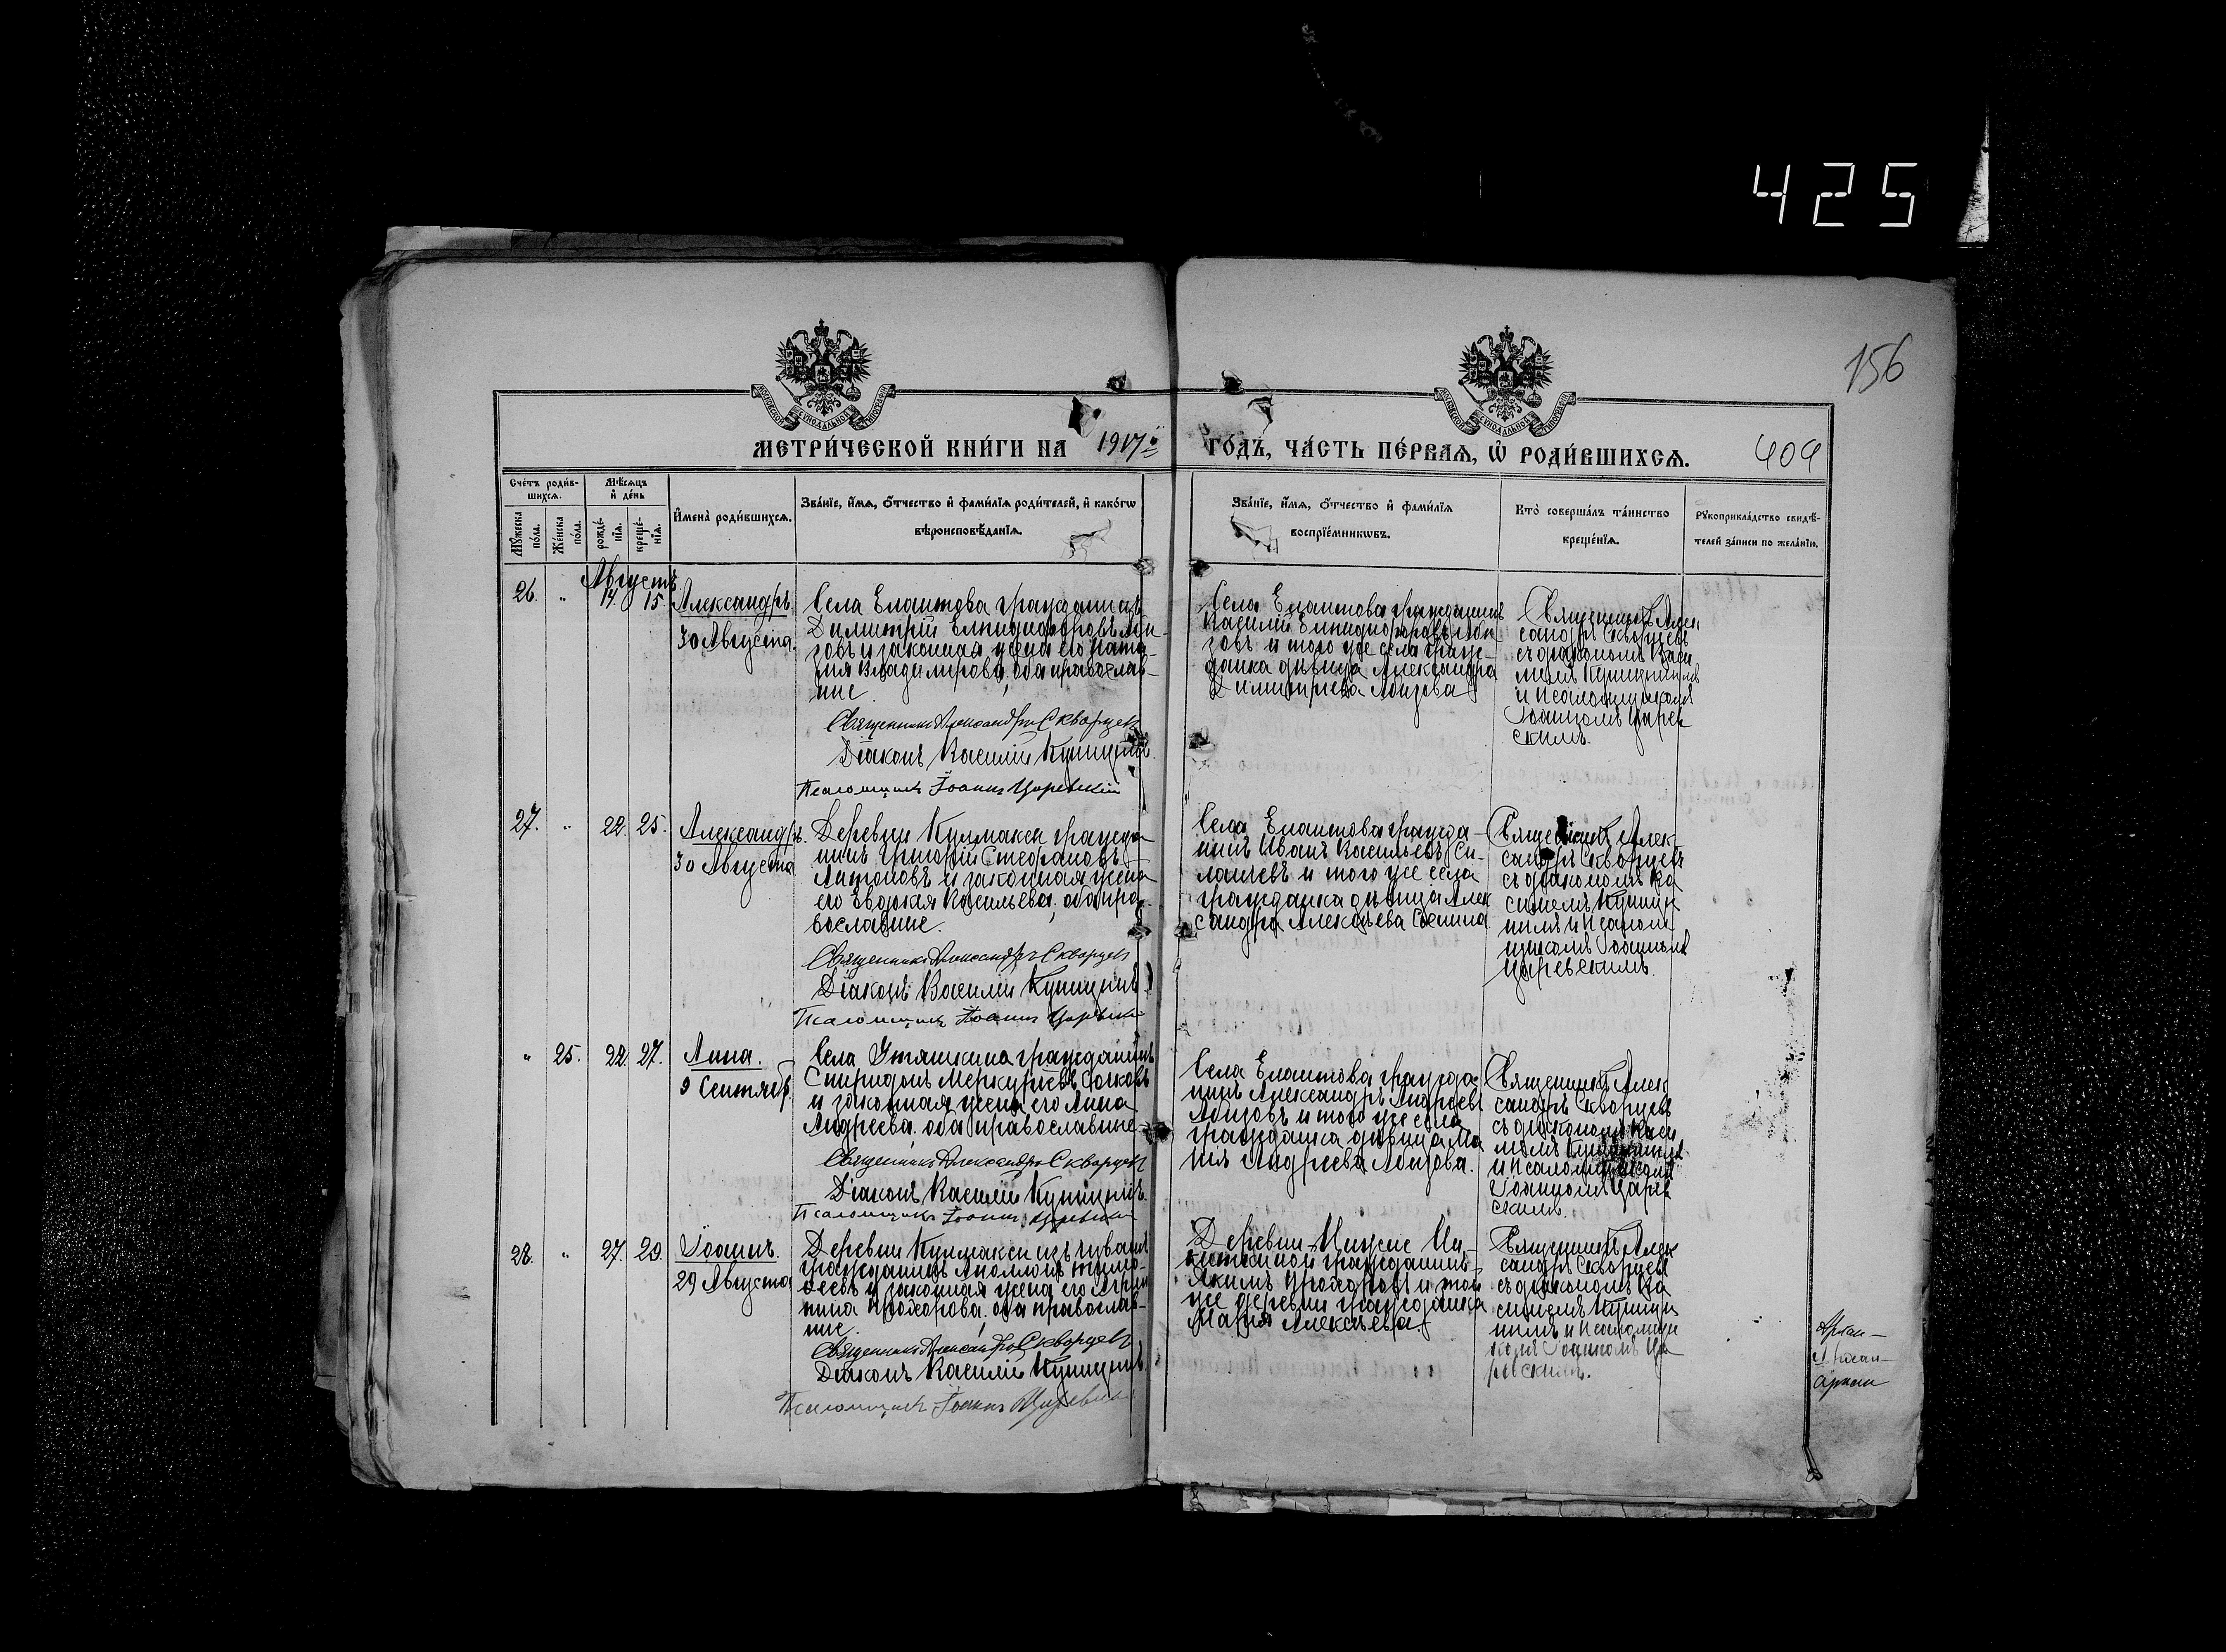 425
156
МОСКОВСКОЙ СѴНОДАЛЬНОЙ ТИПОГРАФІИ
МОСКОВСКОЙ СѴНОДАЛЬНОЙ ТИПОГРАФІИ
МЕТРИ́ЧЕСКОЙ КНИ́ГИ НА 1917й ГО́ДЪ, ЧА́СТЬ ПЕ́РВАѦ, Ѡ҆ РОДИ́ВШИХСѦ.
404
Сче́тъ роди́в-
шихсѧ.
Мѣ́сѧцъ
и҆ де́нь
Мꙋ́жеска
по́ла.
Же́нска
по́ла.
рожде́-
нїѧ.
креще́-
нїѧ.
И҆мена̀ роди́вшихсѧ.
Зва́нїе, и҆́мѧ, ѻ҆́тчество и҆ фами́лїѧ роди́телей, и҆ како́гѡ
вѣроисповѣ́данїѧ.
Зва́нїе, и҆́мѧ, ѻ҆́тчество и҆ фами́лїѧ
воспрїе́мникѡвъ.
Кто̀ соверша́лъ та́инство
креще́нїѧ.
Рꙋкоприкла́дство свидѣ́-
телей за́писи по жела́нїю.
Августъ
26. " 14. 15. Александръ.
30 Августа.
Села Елаитова гражданинъ
Димитрій Елпидифоровъ Ло-
зовъ и законная жена его Ната-
лия Владимирова, оба православ-
ные.
Священникъ Александръ Скворцевъ
Діаконъ Василій Купицынъ.
Псаломщикъ Іоаннъ Царевскій
Села Елаитова гражданинъ
Василій Елпидифоровъ
зовъ и того же села граж-
данка дѣвица Александра
Димитриева
Священникъ Алек
сандръ Скворцевъ
съ діакономъ Васи
лиемъ
и псаломщикомъ
Іоанномъ Царев
скимъ.
27. " 22. 25. Александръ.
30 Августа
Деревни Кулмакси гражда-
нинъ Григорій Стефановъ
Антоновъ и законная жена
его Евдокия Васильева, оба пра-
вославные.
Священникъ Александръ Скворцевъ
Діаконъ Василій Купицынъ
Псаломщикъ Іоаннъ Царевскій
Села Елаитова гражда-
нинъ Иванъ Васильевъ Си-
и того же села
гражданка дѣвица Алек
сандра Алексѣева
Священникъ Алек-
сандръ Скворцевъ
съ діакономъ Ва
силиемъ
и псалом
щикомъ Іоанномъ
Царевскимъ.
" 25. 22. 27. Анна.
9 Сентябр.
Села Утяшкина гражданинъ
Спиридонъ Меркурьевъ
и законная жена его Анна
Андреева, оба православные.
Священникъ Александръ Скворцевъ
Діаконъ Василій Купицынъ.
Псаломщикъ Іоаннъ Царевскій
Села Елаитова гражда
нинъ Александръ Андреевъ
и того же села
гражданка дѣвица Ма
рия Андреева
Священникъ Алек
сандръ Скворцевъ
съ діакономъ Васи
лиемъ
и псаломщикомъ
Іоанномъ Царев
скимъ.
28. " 27. 29. Іоаннъ.
29 Августа
Деревни Кулмакси изъ чувашъ
гражданинъ Аполлонъ Тимо-
феевъ и законная жена его Агри
пина Прохорова, оба православ-
ные.
Священникъ Александръ Скворцевъ
Діаконъ Василій Купицынъ
Псаломщикъ Іоаннъ Царевскій
Деревни
гражданинъ
Акимъ Прохоровъ и той
же деревни гражданка
Мария Алексѣева.
Священникъ Алек
сандръ Скворцевъ
съ діакономъ Ва
силиемъ
и псаломщи
комъ Іоанномъ Ца-
ревскимъ.